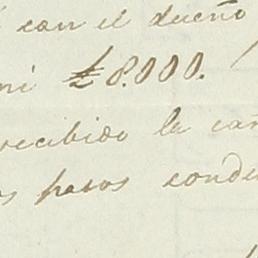 con el dueño
ni £ 8.000.
recibido la can
os pasos condu